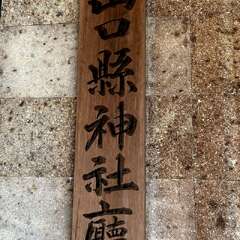 山口縣神社廳